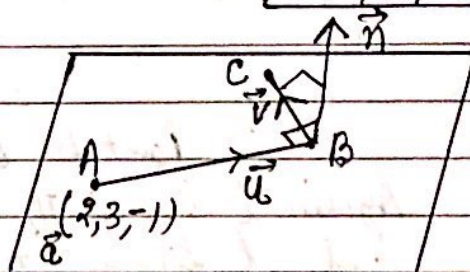 n⃗
C
v⃗
B
A
u⃗
(2,3,-1)
a⃗